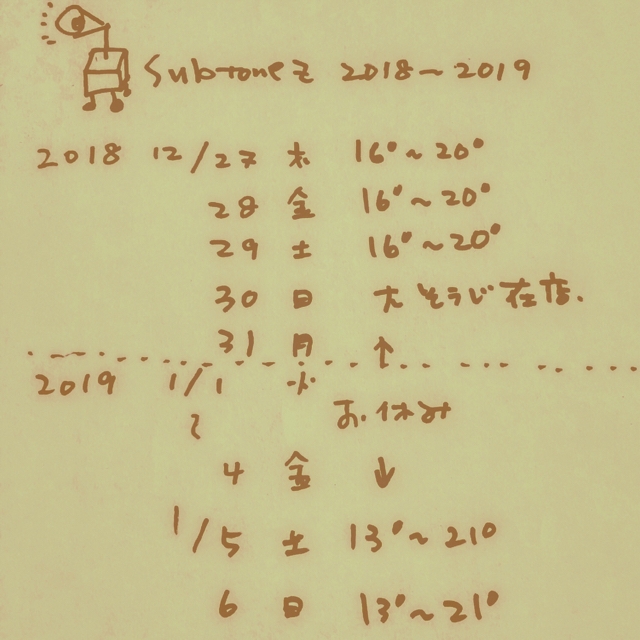 Subtonez 2018~2019
2018 12/27 木 16°~20°
28 金 16°~20°
29 土 16°~20°
30 日 大そうじ在店.
31 月 ↑
2019 1/1 火
〜 お休み
4 金 ↓
1/5 土 13°~21°
6 日 13°~21°